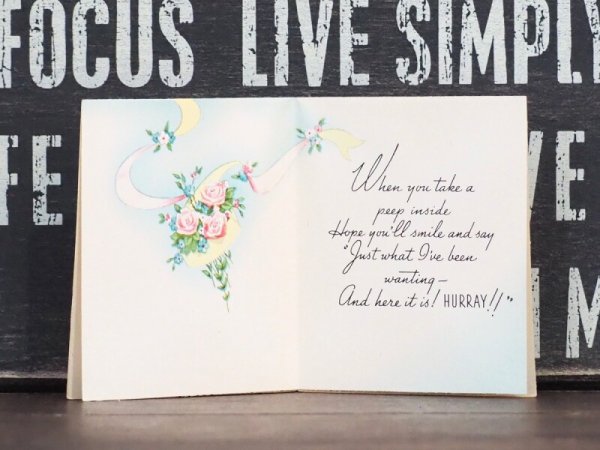 FOCUS LIVE SIMPLY
FE
VE
M
When you take a
peep inside
Hope you'll smile and say
"Just what I've been
wanting—
And here it is! HURRAY!!"